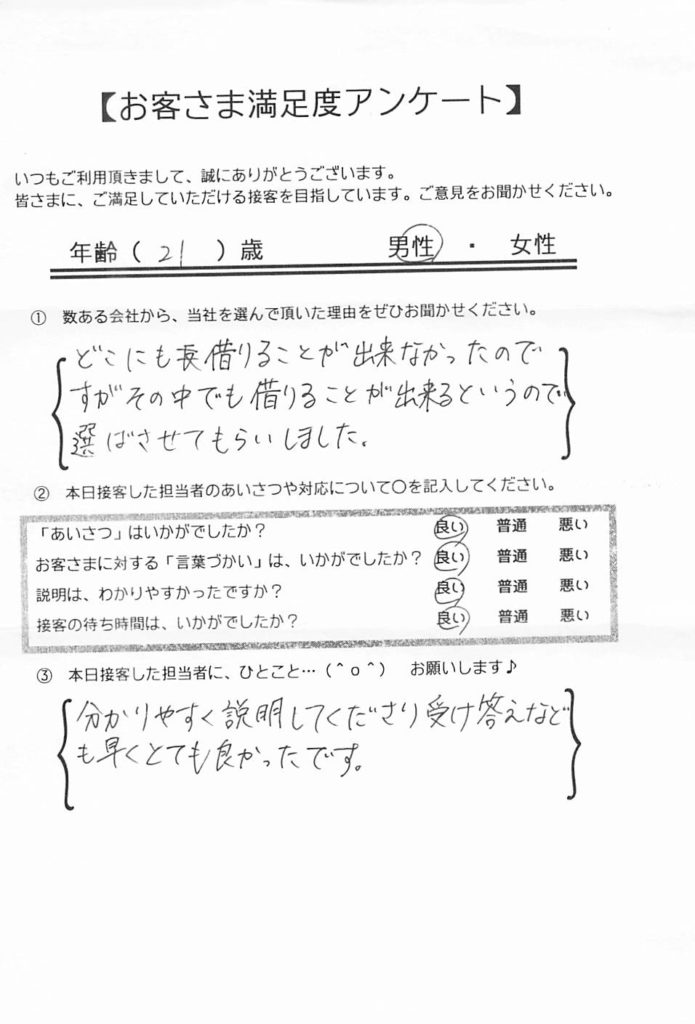 【お客さま満足度アンケート】
いつもご利用頂きまして、誠にありがとうございます。
皆さまに、ご満足していただける接客を目指しています。ご意見をお聞かせください。
年齢（ 21 ）歳　男性 ・ 女性
① 数ある会社から、当社を選んで頂いた理由をぜひお聞かせください。
どこにも長借りることが出来なかったので
すがその中でも借りることが出来るというので
選ばさせてもらいしました。
② 本日接客した担当者のあいさつや対応について〇を記入してください。
「あいさつ」はいかがでしたか？　良い　普通　悪い
お客さまに対する「言葉づかい」は、いかがでしたか？　良い　普通　悪い
説明は、わかりやすかったですか？　良い　普通　悪い
接客の待ち時間は、いかがでしたか？　良い　普通　悪い
③ 本日接客した担当者に、ひとこと…（＾ｏ＾）　お願いします♪
分かりやすく説明してくださり受け答えなど
も早くとても良かったです。